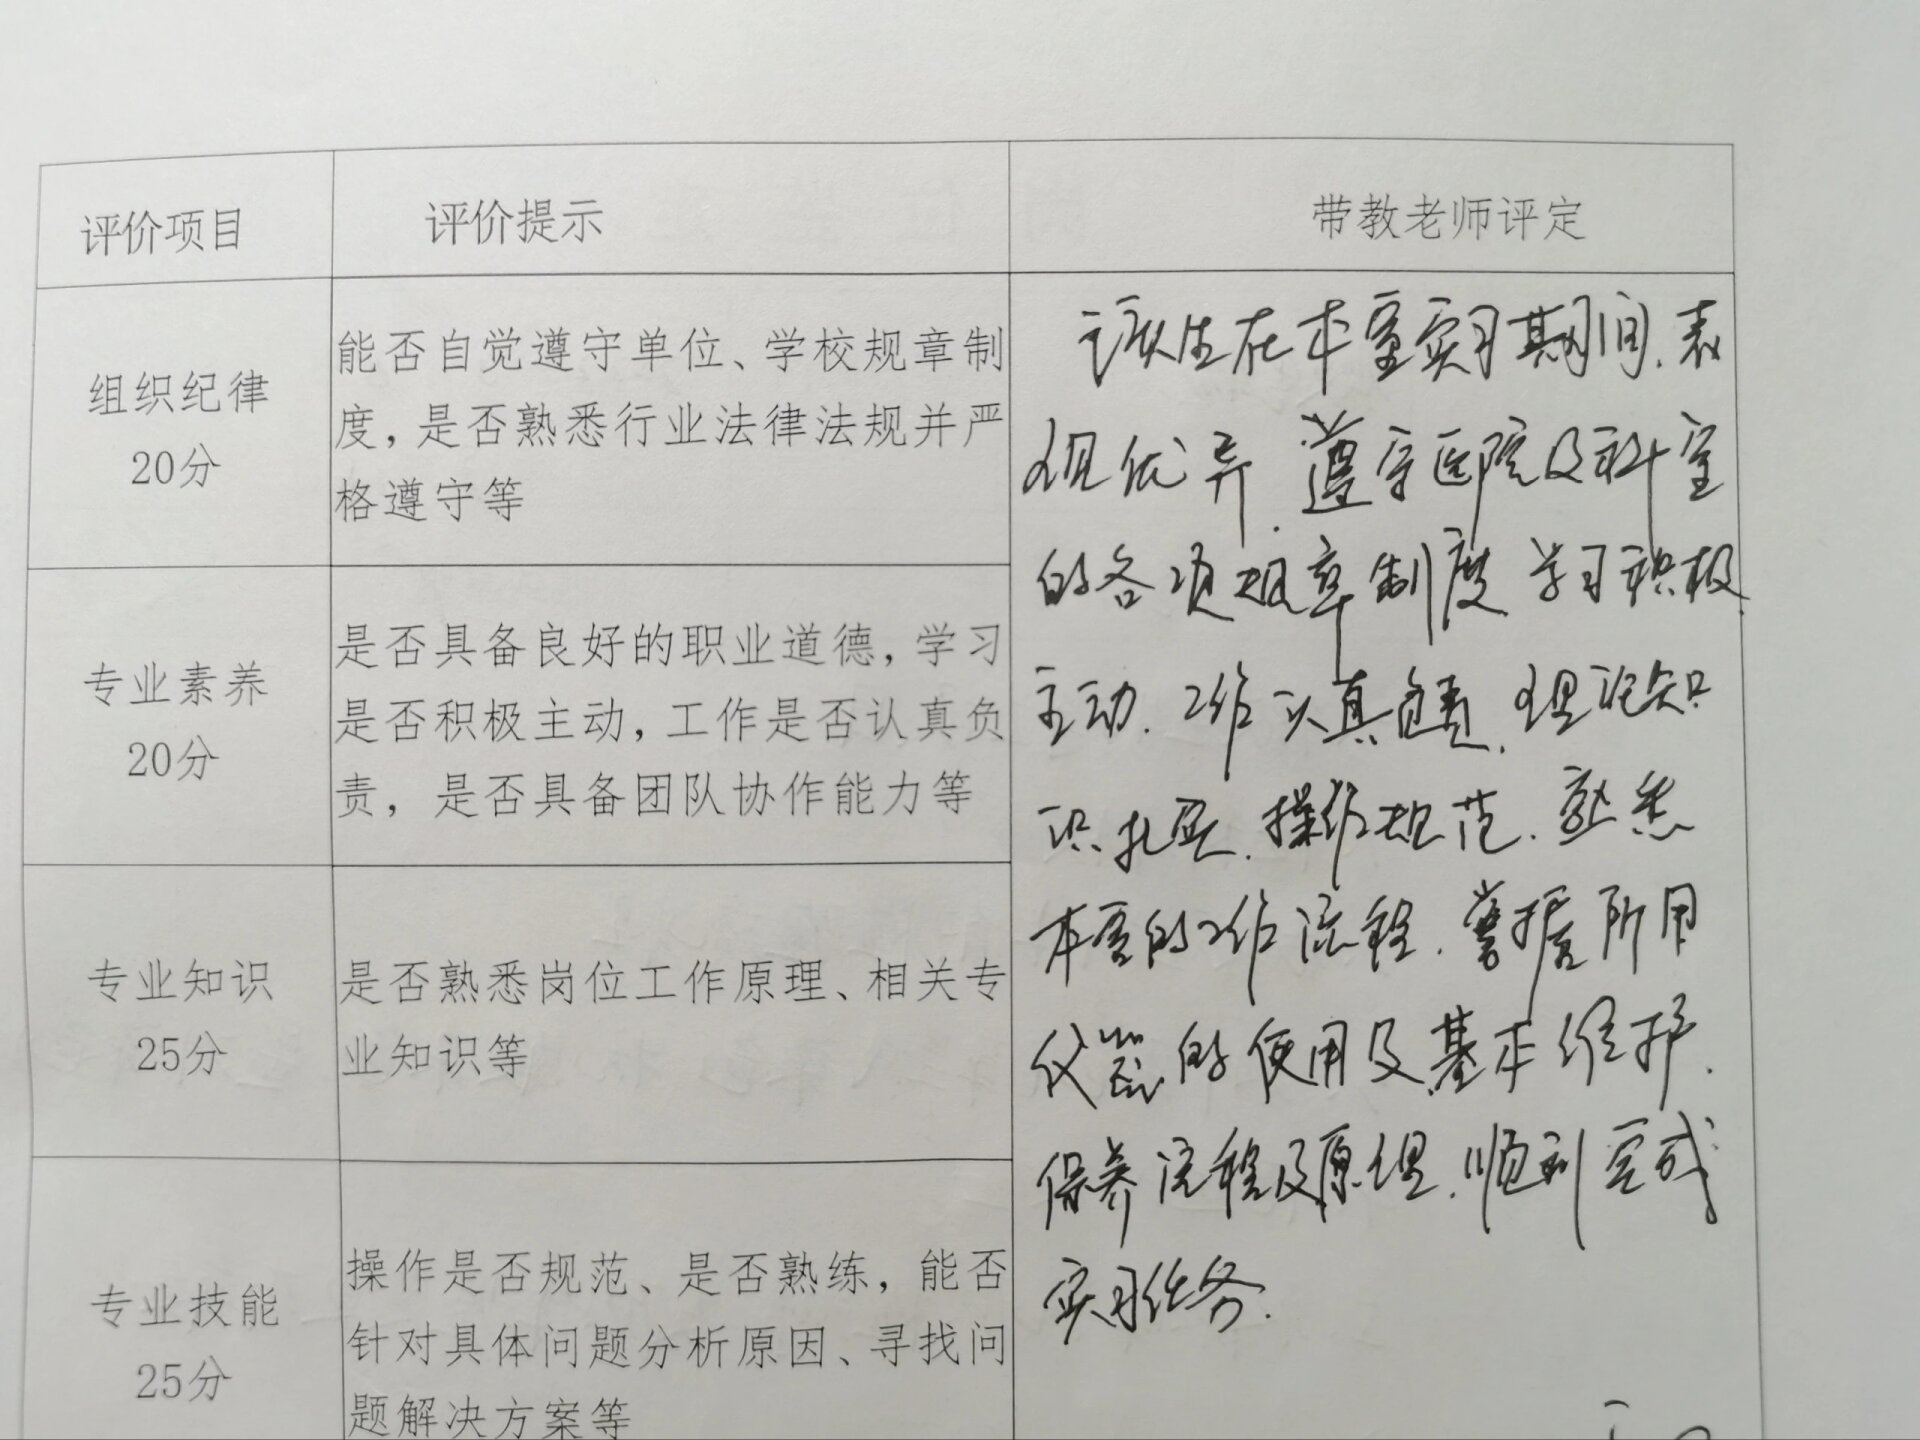 评价项目
评价提示
带教老师评定
组织纪律
20分
能否自觉遵守单位、学校规章制
度，是否熟悉行业法律法规并严
格遵守等
专业素养
20分
是否具备良好的职业道德，学习
是否积极主动，工作是否认真负
责，是否具备团队协作能力等
专业知识
25分
是否熟悉岗位工作原理、相关专
业知识等
专业技能
25分
操作是否规范、是否熟练，能否
针对具体问题分析原因、寻找问
题解决方案等
该生在本室实习期间，表
现优异，遵守医院及科室
的各项规章制度，学习积极
主动，工作认真负责，理论知
识扎实，操作规范，熟悉
本室的工作流程，掌握所用
仪器的使用及基本维护，
保养流程及原理，顺利完成
实习任务。